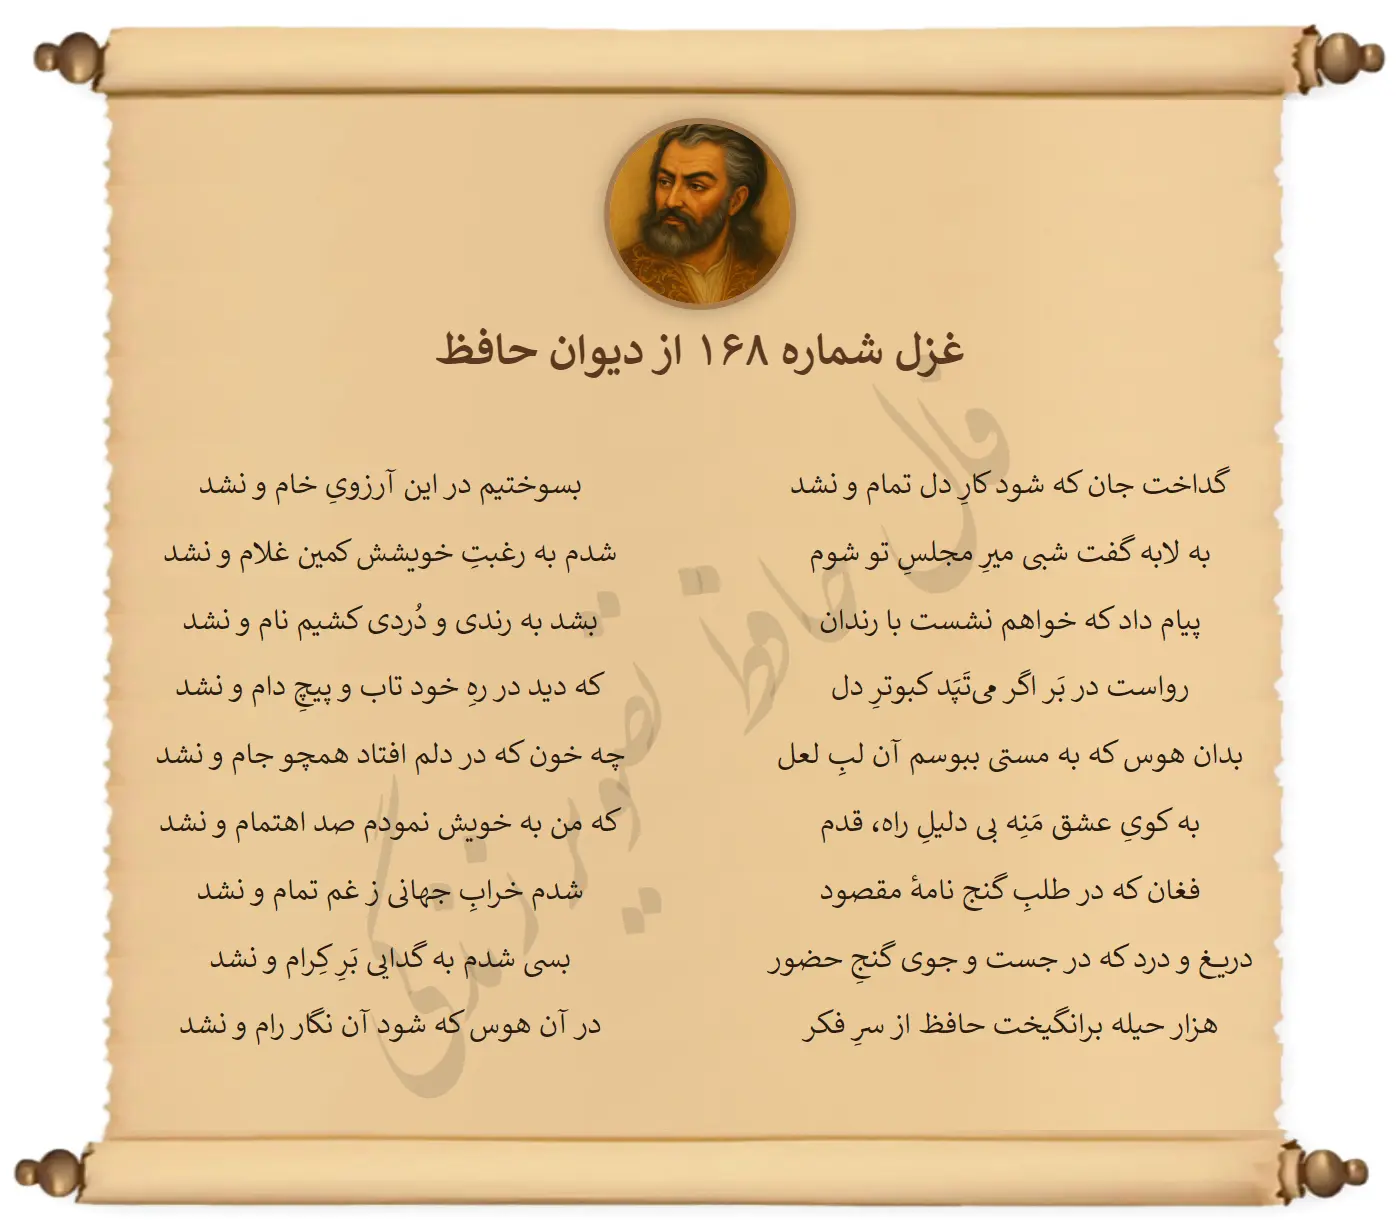 غزل شماره ۱۶۸ از دیوان حافظ
گداخت جان که شود کارِ دل تمام و نشد
بسوختیم در این آرزویِ خام و نشد
به لابه گفت شبی میرِ مجلسِ تو شوم
شدم به رغبتِ خویشش کمین غلام و نشد
پیام داد که خواهم نشست با رندان
بشد به رندی و دُردی کشیم نام و نشد
رواست در بَر اگر می‌تَپَد کبوترِ دل
که دید در رهِ خود تاب و پیچِ دام و نشد
بدان هوس که به مستی ببوسم آن لبِ لعل
چه خون که در دلم افتاد همچو جام و نشد
به کویِ عشق مَنِه بی دلیلِ راه، قدم
که من به خویش نمودم صد اهتمام و نشد
فغان که در طلبِ گنج نامهٔ مقصود
شدم خرابِ جهانی ز غم تمام و نشد
دریغ و درد که در جست و جوی گنجِ حضور
بسی شدم به گدایی بَرِ کِرام و نشد
هزار حیله برانگیخت حافظ از سرِ فکر
در آن هوس که شود آن نگار رام و نشد
فال حافظ تصویر زندگی